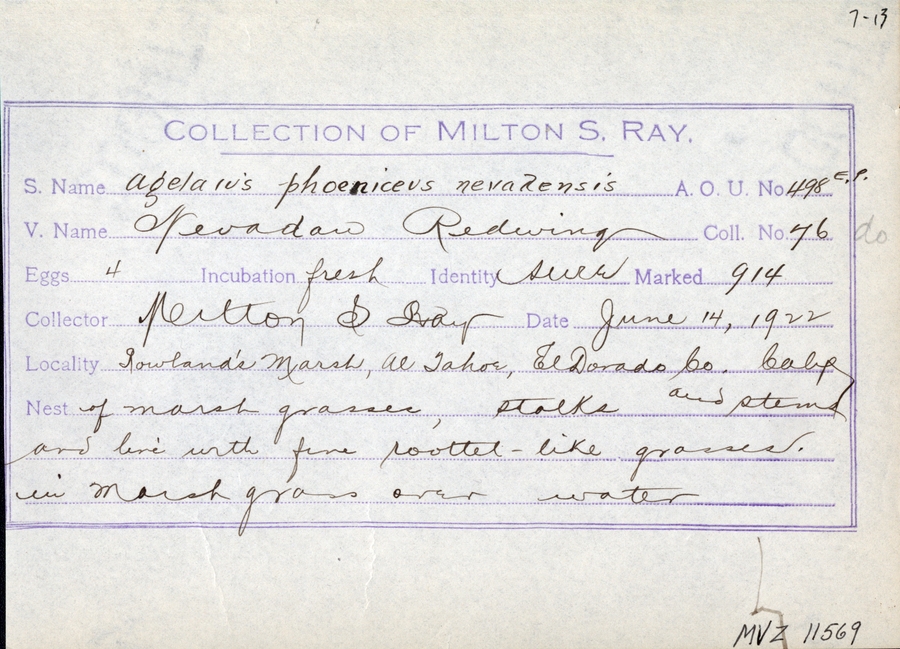 7-13
COLLECTION OF MILTON S. RAY.
S. Name Agelaius phoeniceus nevadensis A. O. U. No. 498 E.P.
V. Name Nevadan Redwing Coll. No. 76 do
Eggs 4 Incubation fresh Identity sure Marked 914
Collector Milton S Ray Date June 14, 1922
Locality Rowland's Marsh, Al Tahoe, El Dorado Co. Calif
Nest of marsh grasses, stalks and stems
and line with fine roottel-like grasses.
in marsh grass over water
MVZ 11569